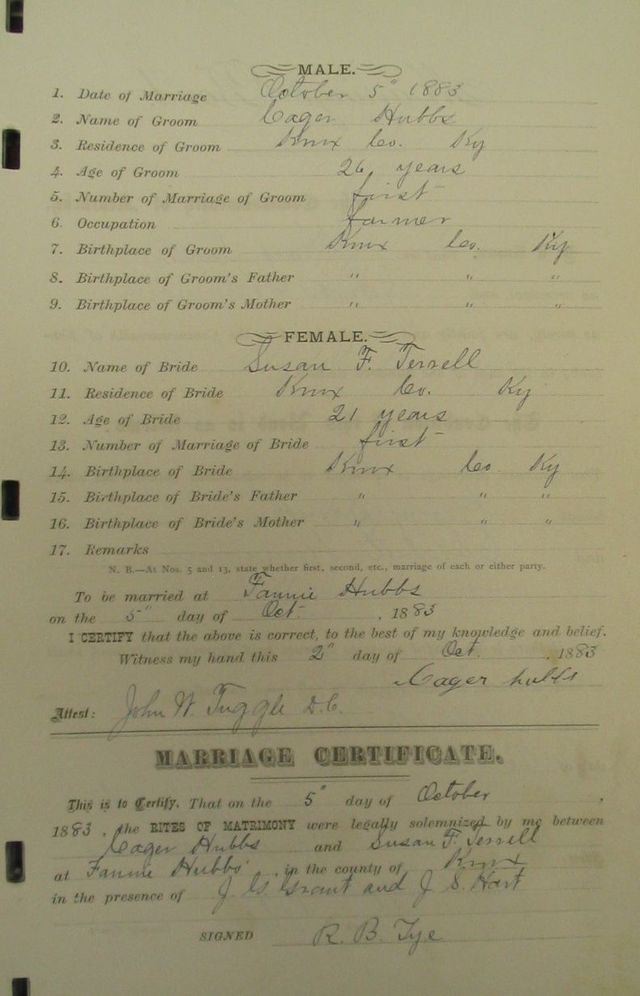 MALE.
1. Date of Marriage October 5" 1883
2. Name of Groom Cager Hubbs
3. Residence of Groom Knox Co. Ky
4. Age of Groom 26 years
5. Number of Marriage of Groom first
6. Occupation farmer
7. Birthplace of Groom Knox Co. Ky
8. Birthplace of Groom's Father " " "
9. Birthplace of Groom's Mother " " "
FEMALE.
10. Name of Bride Susan F. Terrell
11. Residence of Bride Knox Co. Ky
12. Age of Bride 21 years
13. Number of Marriage of Bride first
14. Birthplace of Bride Knox Co Ky
15. Birthplace of Bride's Father " " "
16. Birthplace of Bride's Mother " " "
17. Remarks
N. B.—At Nos. 5 and 13, state whether first, second, etc., marriage of each or either party.
To be married at Fannie Hubbs
on the 5" day of Oct. , 1883
I CERTIFY that the above is correct, to the best of my knowledge and belief.
Witness my hand this 2" day of Oct. , 1883
Cager hubbs
Attest: John W. Tuggle D.C.
MARRIAGE CERTIFICATE.
This is to Certify, That on the 5" day of October ,
1883, the RITES OF MATRIMONY were legally solemnized by me between
Cager Hubbs and Susan F. Terrell
at Fannie Hubbs , in the county of Knox
in the presence of J. G. Grant and J. S. Hart
SIGNED R. B. Tye